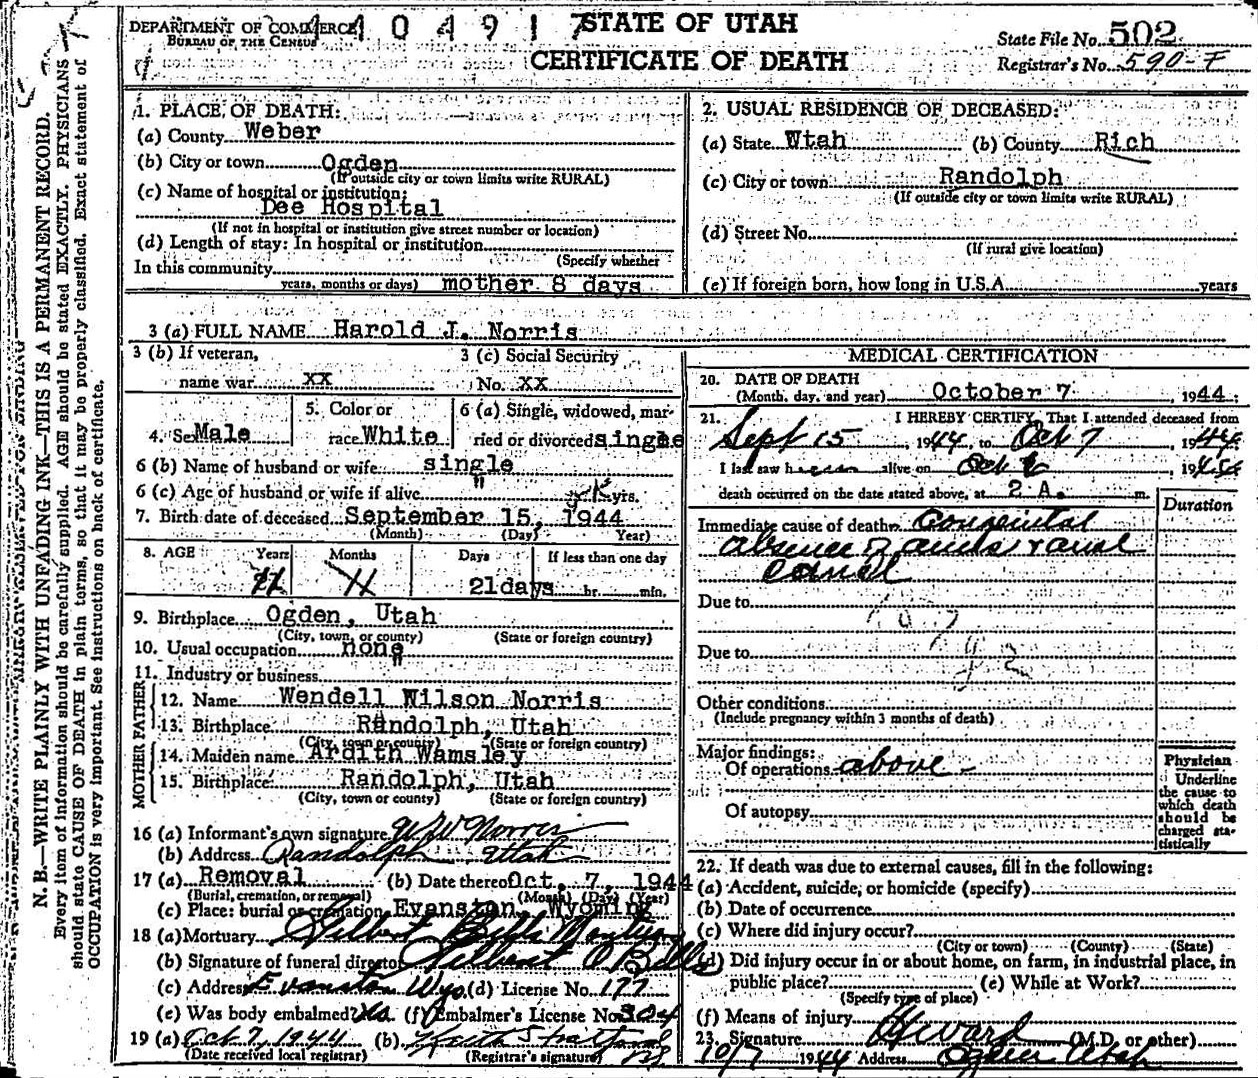 DEPARTMENT OF COMMERCE
BUREAU OF THE CENSUS
4 0 4 9 1 7
STATE OF UTAH
CERTIFICATE OF DEATH
State File No. 502
Registrar's No. 590-F
N. B.—WRITE PLAINLY WITH UNFADING INK—THIS IS A PERMANENT RECORD.
Every item of information should be carefully supplied. AGE should be stated EXACTLY. PHYSICIANS
should state CAUSE OF DEATH in plain terms, so that it may be properly classified. Exact statement of
OCCUPATION is very important. See instructions on back of certificate.
1. PLACE OF DEATH:
(a) County Weber
(b) City or town Ogden
(If outside city or town limits write RURAL)
(c) Name of hospital or institution:
Dee Hospital
(If not in hospital or institution give street number or location)
(d) Length of stay: In hospital or institution
(Specify whether
In this community
years, months or days) mother 8 days
2. USUAL RESIDENCE OF DECEASED:
(a) State Wtah (b) County Rich
(c) City or town Randolph
(If outside city or town limits write RURAL)
(d) Street No.
(If rural give location)
(e) If foreign born, how long in U.S.A. years
3 (a) FULL NAME Harold J. Norris
3 (b) If veteran,
name war XX
3 (c) Social Security
No. XX
4. Sex Male
5. Color or
race White
6 (a) Single, widowed, mar-
ried or divorced single
6 (b) Name of husband or wife single
6 (c) Age of husband or wife if alive " yrs.
7. Birth date of deceased September 15, 1944
(Month) (Day) Year)
8. AGE Years Months Days If less than one day
21days hr. min.
9. Birthplace Ogden, Utah
(City, town, or county) (State or foreign country)
10. Usual occupation none
11. Industry or business "
FATHER
12. Name Wendell Wilson Norris
13. Birthplace Randolph, Utah
(City, town or county) (State or foreign country)
MOTHER
14. Maiden name Ardith Wamsley
15. Birthplace Randolph, Utah
(City, town or county) (State or foreign country)
16 (a) Informant's own signature W W Norris
(b) Address Randolph Utah
17 (a) Removal (b) Date thereof Oct. 7, 1944
(Burial, cremation, or removal) (Month) (Day) (Year)
(c) Place: burial or cremation Evanston, Wyoming
18 (a) Mortuary Gilbert Bills Mortuary
(b) Signature of funeral director Gilbert O Bills
(c) Address Evanston Wyo. (d) License No. 177
(e) Was body embalmed? Yes (f) Embalmer's License No. 304
19 (a) Oct 7, 1944 (b) Keith
(Date received local registrar) (Registrar's signature)
MEDICAL CERTIFICATION
20. DATE OF DEATH
(Month, day, and year) October 7, 1944
21. I HEREBY CERTIFY, That I attended deceased from
Sept 15, 1944, to Oct 7, 1944
I last saw h alive on Oct, 19
death occurred on the date stated above, at 2 A. m.
Duration
Immediate cause of death Congenital
absence of anus & anal
canal
Due to
Due to
Other conditions
(Include pregnancy within 3 months of death)
Major findings:
Of operations above -
Of autopsy
Physician
Underline
the cause to
which death
should be
charged sta-
tistically
22. If death was due to external causes, fill in the following:
(a) Accident, suicide, or homicide (specify)
(b) Date of occurrence
(c) Where did injury occur?
(City or town) (County) (State)
(d) Did injury occur in or about home, on farm, in industrial place, in
public place? (e) While at Work?
(Specify type of place)
(f) Means of injury
23. Signature (M.D. or other)
10/7 1944 Address Ogden Utah